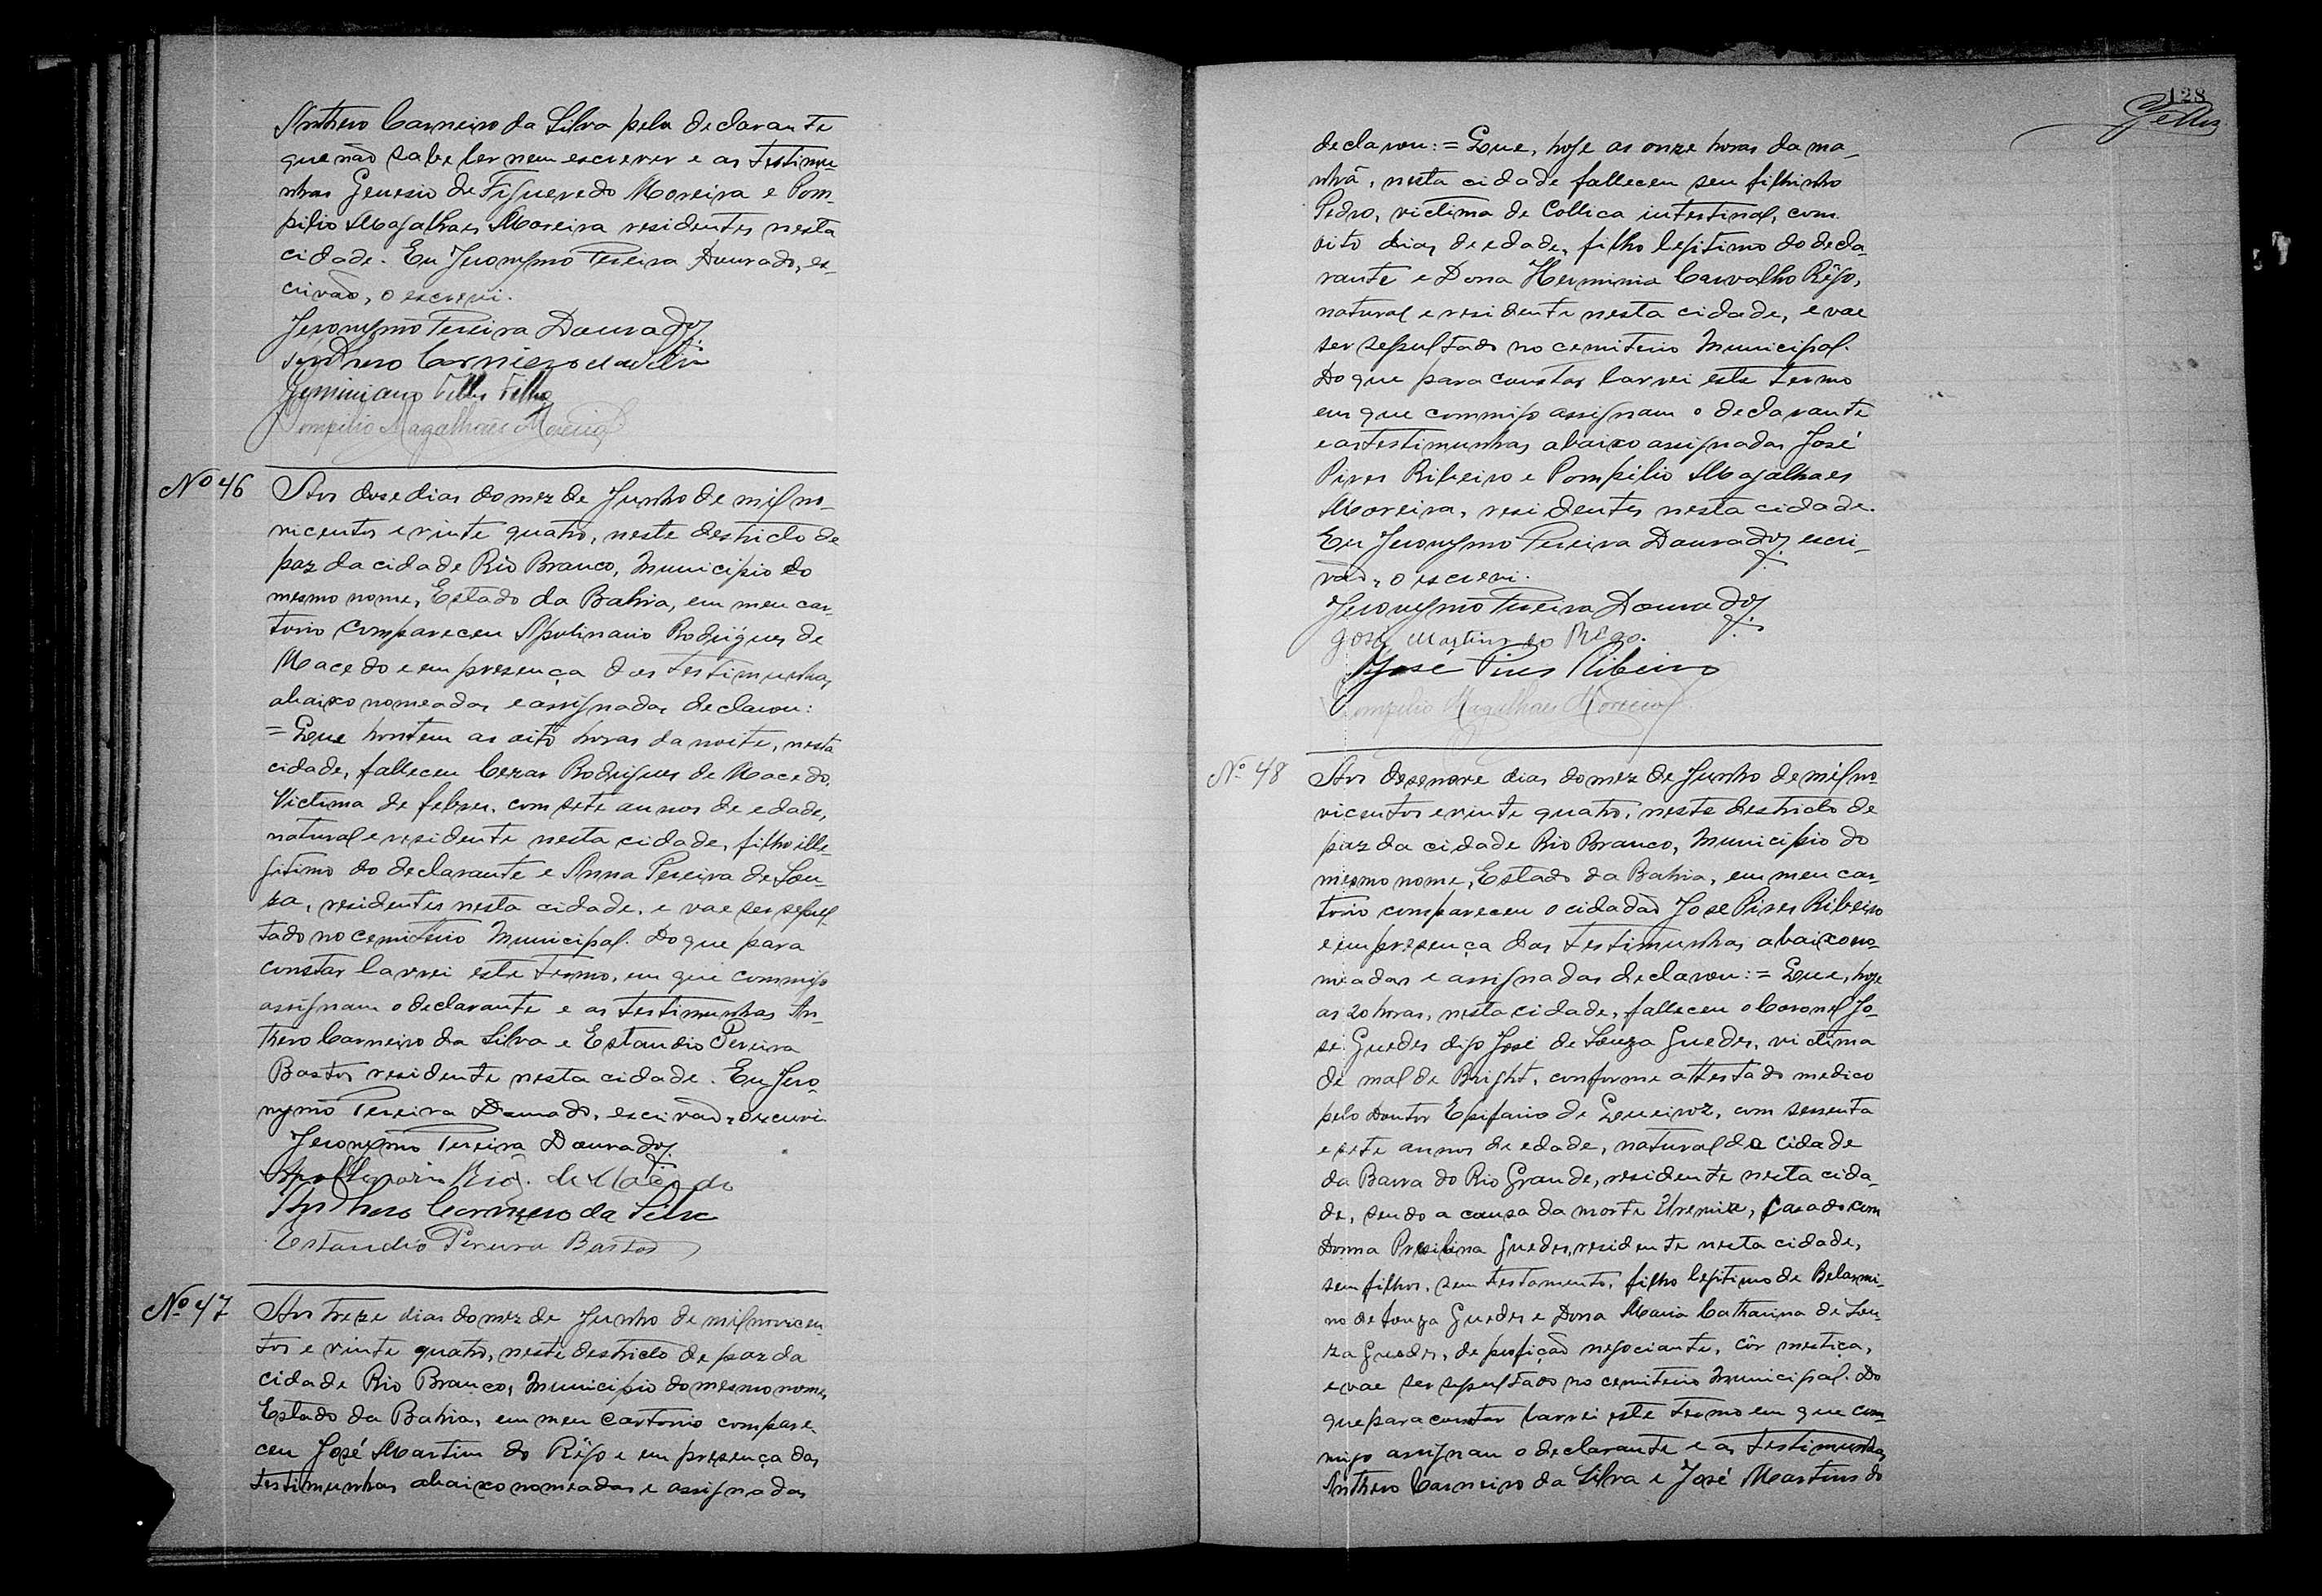 Anthero Carneiro da Silva pela declarante
que não sabe ler nem escrever e as testimu-
nhas Genesio de Figueredo Moreira e Pom-
pilio Magalhaes Moreira residentes nesta
cidade. Eu Jeronymo Pereira Dourado, es-
crivão, o escrevi.
Jeronymo Pereira Dourado
Anthero Carneiro da Silva
Geminiano Telles Filho
Pompilio Magalhães Moreira
Nº 46
Aos dose dias do mez de Junho de mil no-
vicentos e vinte quatro, neste destricto de
paz da cidade Rio Branco, Municipio do
mesmo nome, Estado da Bahia, em meu car-
torio compareceu Apolinario Rodrigues de
Macedo e em presença das testimunhas
abaixo nomeadas e assignadas declarou:
= Que hontem as oito horas da noite, nesta
cidade, falleceu Cezar Rodrigues de Macedo,
victima de febres, com sete annos de edade,
natural e residente nesta cidade, filho ille-
gitimo do declarante e Anna Pereira de Sou-
za, residentes nesta cidade, e vae ser sepul-
tado no cemiterio Municipal. Do que para
constar lavrei este termo, em que commigo
assignam o declarante e as testimunhas An-
thero Carneiro da Silva e Estandio Pereira
Bastos residente nesta cidade. Eu Jero-
nymo Pereira Dourado, escrivão, o escrevi
Jeronymo Pereira Dourado
Rod. de Macedo
Anthero Carneiro da Silva
Estandio Pereira Bastos
Nº 47
Aos treze dias do mez de Junho de mil novicen-
tos e vinte quatro, neste destricto de paz da
cidade Rio Branco, Municipio do mesmo nome,
Estado da Bahia, em meu cartorio compare-
ceu José Martins do Rêgo e em presença das
testimunhas abaixo nomeadas e assignadas
128
declarou: = Que, hoje as onze horas da ma-
nhã, nesta cidade falleceu seu filhinho
Pedro, victima de Collica intestinal, com
oito dias de edade, filho legitimo do decla-
rante e Dona Herminia Carvalho Rêgo,
natural e residente nesta cidade, e vae
ser sepultado no cemiterio Municipal.
Do que para constar lavrei este termo
em que commigo assignam o declarante
e as testimunhas abaixo assignadas José
Pires Ribeiro e Pompilio Magalhaes
Moreira, residentes nesta cidade.
Eu Jeronymo Pereira Dourado, escri-
vão, o escrevi.
Jeronymo Pereira Dourado
José Martins do Rêgo.
José Pires Ribeiro
Pompilio Magalhães Moreira
Nº 48
Aos desenove dias do mez de Junho de mil no-
vicentos e vinte quatro, neste destricto de
paz da cidade Rio Branco, Municipio do
mesmo nome, Estado da Bahia, em meu car-
torio compareceu o cidadão José Pires Ribeiro
e em presença das testimunhas abaixo no-
meadas e assignadas declarou: = Que, hoje
as 20 horas, nesta cidade, falleceu o Coronel Jo-
sé Guedes digo José de Souza Guedes, victima
de mal de Bright, conforme attestado medico
pelo Doutor Epifanio de Queiroz, com sessenta
e sete annos de edade, natural da cidade
da Barra do Rio Grande, residente nesta cida-
de, sendo a causa da morte Uremia, casado com
Donna Presilina Guedes, residente nesta cidade,
sem filhos, sem testamento, filho legitimo de Belarmi-
no de Souza Guedes e Dona Maria Catharina de Sou-
za Guedes, de profição negociante, côr mestiça,
e vae ser sepultado no cemiterio Municipal. Do
que para constar lavrei este termo em que com-
migo assignam o declarante e as testimunhas
Anthero Carneiro da Silva e José Martins do